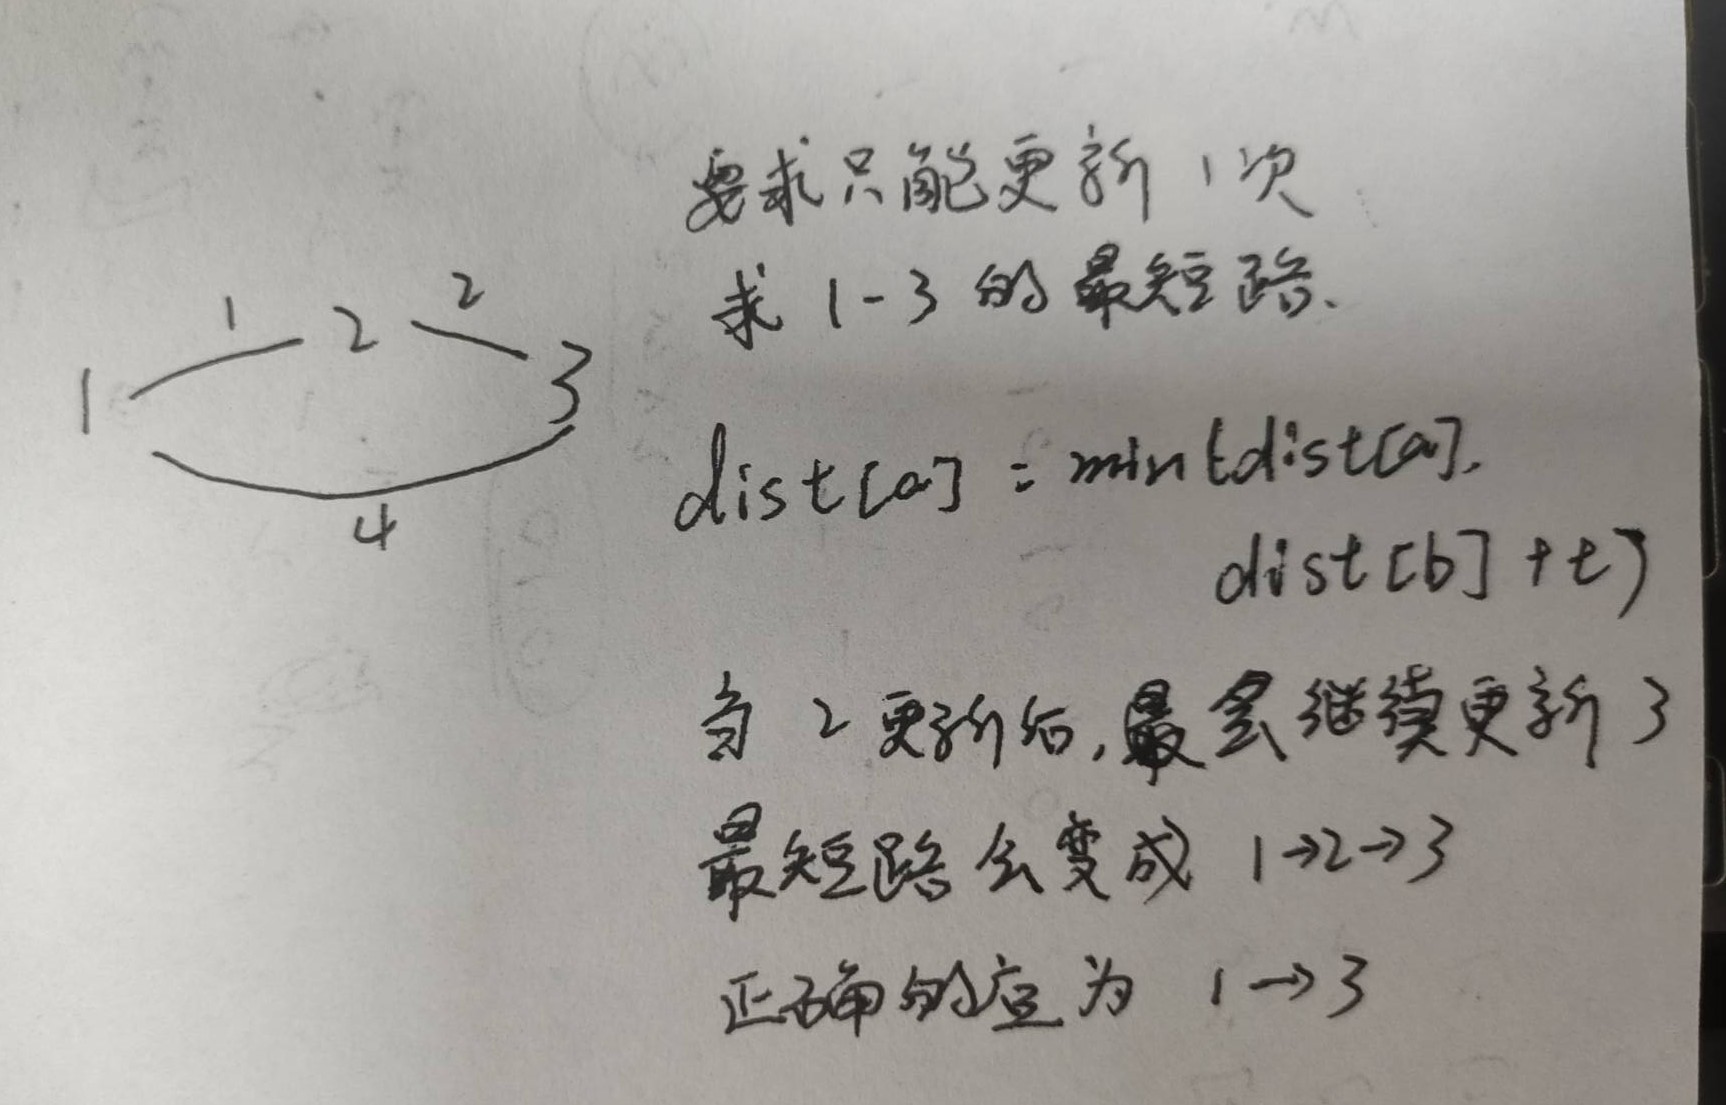 要求只能更新 1次
求 1-3 的最短路、
1 2
1 2 3
4
dist[a] = min(dist[a],
dist[b] + t)
当 2 更新后, 会继续更新 3
最短路会变成 1→2→3
正确的应为 1→3